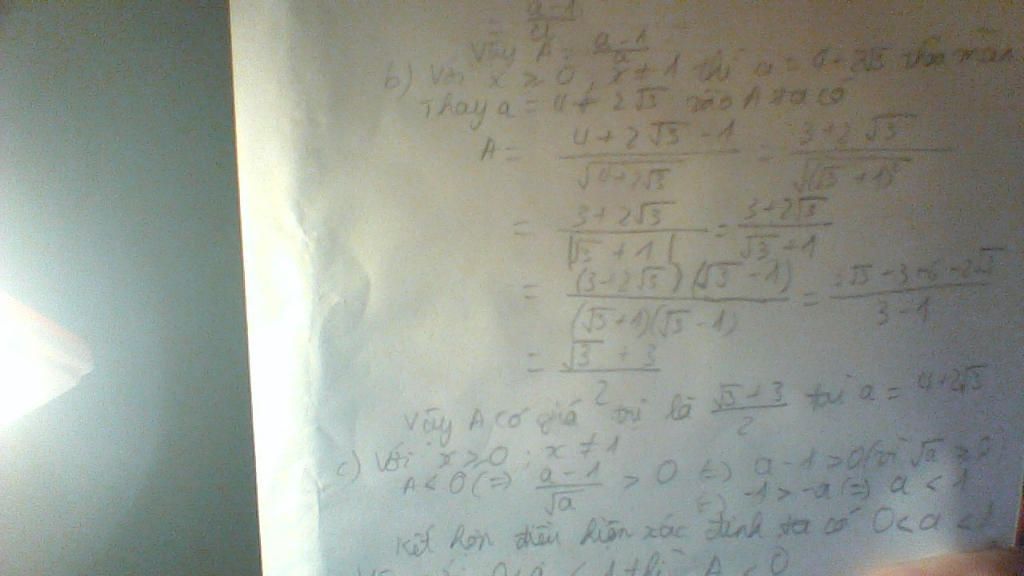 = a-1
Vậy A = a-1
b) Với x > 0, x ≠ 1 thì a = 4+2√3 thỏa mãn
Thay a = 4+2√3 vào A ta có
A = (4+2√3-1)/√(4+2√3) = (3+2√3)/√((√3+1)²)
= (3+2√3)/|√3+1| = (3+2√3)/(√3+1)
= ((3+2√3)(√3-1))/((√3+1)(√3-1)) = (3√3-3+6-2√3)/(3-1)
= (√3+3)/2
Vậy A có giá trị là (√3+3)/2 tại a = 4+2√3
c) Với x > 0; x ≠ 1
A < 0 (=) (a-1)/√a > 0 (=) a-1 > 0 (vì √a > 0)
(=) -1 > -a (=) a < 1
Kết hợp điều kiện xác định ta có 0 < a < 1
0 < a < 1 thì A < 0